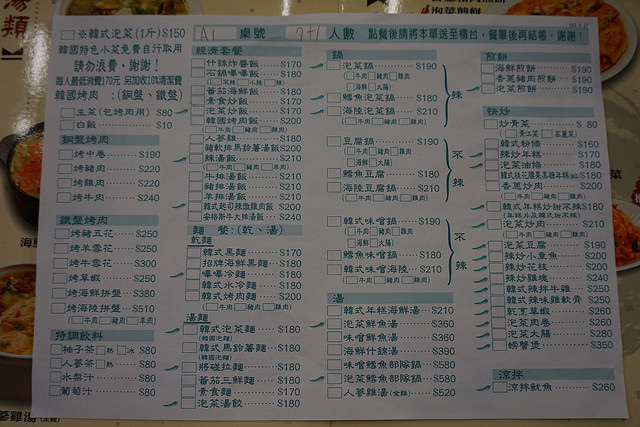 湯類
泡菜煎餅
※韓式泡菜(1斤)$150
韓國特色小菜免費自行取用
請勿浪費，謝謝！
每人最低消費170元 另加收10%清潔費
韓國烤肉 :(銅盤、鐵盤)
生菜(包烤肉用) $80
白飯 $10
銅盤烤肉
烤中卷 $190
烤豬肉 $220
烤雞肉 $220
烤牛肉 $240
鐵盤烤肉
烤豬五花 $250
烤羊雪花 $250
烤牛雪花 $300
烤草蝦 $250
烤海鮮拼盤 $380
烤海陸拼盤 $510
特調飲料
柚子茶 熱 冰 $80
人蔘茶 熱 $80
水梨汁 $80
葡萄汁 $80
A1 桌號 2+1 人數 點餐後請將本單送至櫃台，餐畢後再結帳。謝謝！
經濟套餐
什錦炸醬飯 $170
石鍋嗶嗶飯 $180
番茄海鮮飯 $180
素食炒飯 $170
泡菜炒飯 $170
韓國烤肉飯 $200
人蔘雞 $180
豬軟排馬鈴薯湯飯$210
辣湯飯 $210
牛排湯飯 $210
豬排湯飯 $210
羊排湯飯 $210
韓式起司辣燉雞肉飯 $200
安格斯牛大排湯飯 $240
麵 餐:(乾、湯)
乾麵
韓式黑麵 $170
招牌海鮮黑麵 $180
嗶嗶冷麵 $180
韓式水冷麵 $180
韓式烤肉麵 $200
湯麵
韓式泡菜麵 $180
(韓國泡麵)
韓式馬鈴薯麵 $180
(韓國泡麵)
將碰拉麵 $180
番茄三鮮麵 $180
素食麵 $170
泡菜湯餃 $180
鍋
泡菜鍋 $190
鱈魚泡菜鍋 $180
海陸泡菜鍋 $210
辣
豆腐鍋 $190
鱈魚豆腐 $180
海陸豆腐鍋 $210
不辣
韓式味噌鍋 $190
鱈魚味噌鍋 $180
韓式味噌海陸 $210
不辣
湯
韓式年糕海鮮湯 $210
泡菜鮮魚湯 $360
味噌鮮魚湯 $350
海鮮什錦湯 $390
味噌鱈魚部隊鍋 $580
泡菜鱈魚部隊鍋 $580
人蔘雞湯(全雞) $520
煎餅
海鮮煎餅 $190
香蔥豬肉煎餅 $190
泡菜煎餅 $190
快炒
炒青菜 $ 80
韓式粉條 $160
辣炒年糕 $170
泡菜油條 $180
香蔥炒肉 $200
韓式年糕炒甜不辣$180
泡菜炒肉 $210
泡菜豆腐 $190
辣炒小章魚 $200
辣炒花枝 $200
辣炒雞塊 $240
韓式辣拌牛雜 $250
韓式辣味雞軟骨 $250
乾烹草蝦 $260
泡菜肉卷 $260
泡菜大腸 $280
螃蟹煲 $350
涼拌
涼拌魷魚 $260